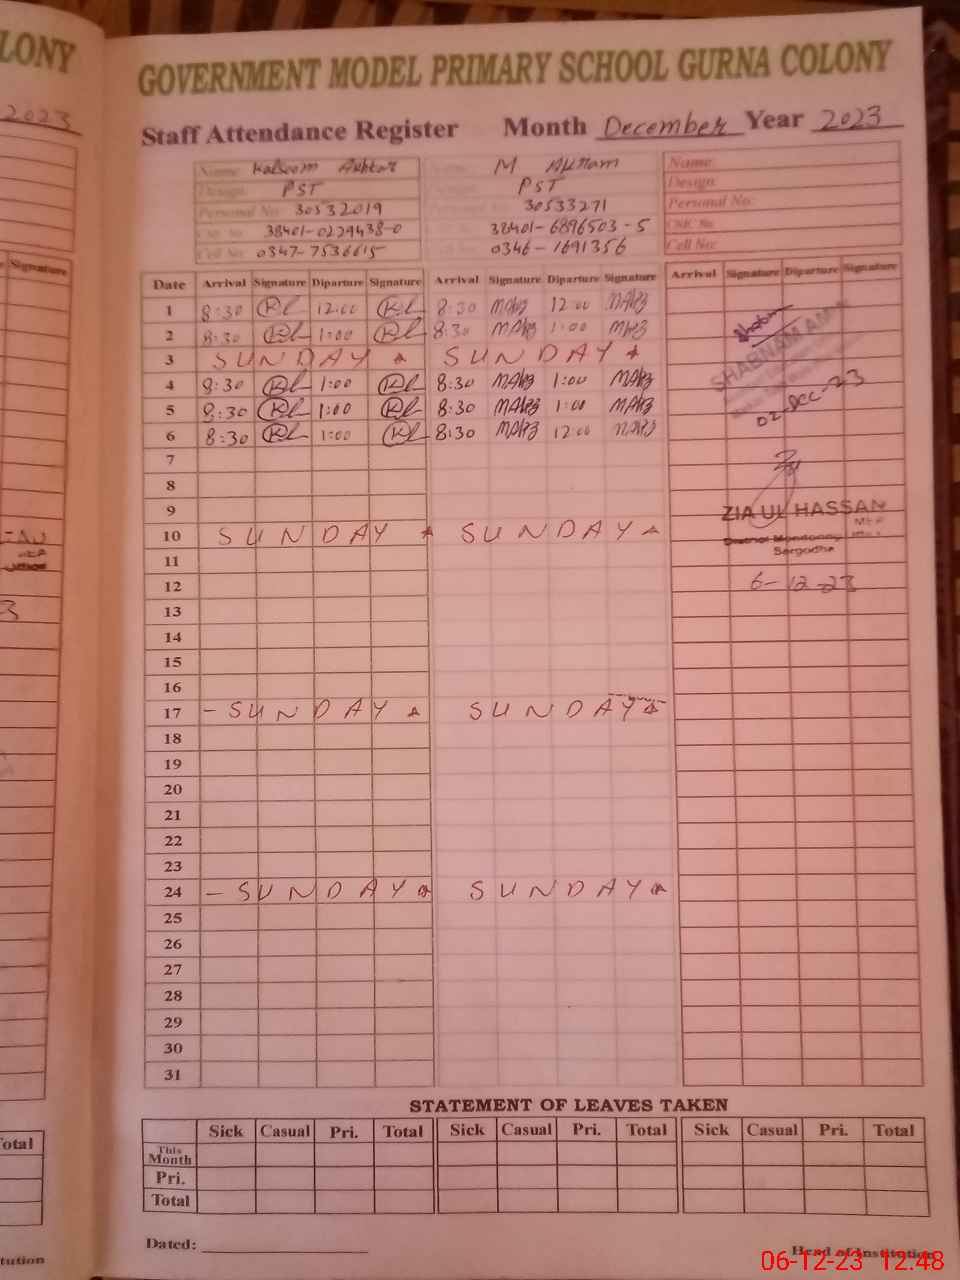 LONY
2023
Signature
Total
tution
GOVERNMENT MODEL PRIMARY SCHOOL GURNA COLONY
Staff Attendance Register Month December Year 2023
Name: Kalsoom Akhtar M Akram Name:
Design: PST PST Design:
Personal No: 30532019 30533271 Personal No:
CNIC No. 38401-0229438-0 38401-6896503-5 CNIC No.
Cell No: 0347-7536615 0346-1691356 Cell No:
Date Arrival Signature Diparture Signature Arrival Signature Diparture Signature Arrival Signature Diparture Signature
1 8:30 12:00 8:30 12:00
2 8:30 1:00 8:30 1:00
3 SUNDAY SUNDAY
4 8:30 1:00 8:30 1:00
5 8:30 1:00 8:30 1:00
6 8:30 1:00 8:30 12:00
SHABNAM
02-Dec-23
7
8
9
ZIA UL HASSAN
10 SUNDAY SUNDAY
District Monitoring
Sargodha
11
12
6-12-23
13
14
15
16
17 - SUNDAY SUNDAY
18
19
20
21
22
23
24 - SUNDAY SUNDAY
25
26
27
28
29
30
31
STATEMENT OF LEAVES TAKEN
Sick Casual Pri. Total Sick Casual Pri. Total Sick Casual Pri. Total
This Month
Pri.
Total
Dated:
Head of Institution
06-12-23 12:48